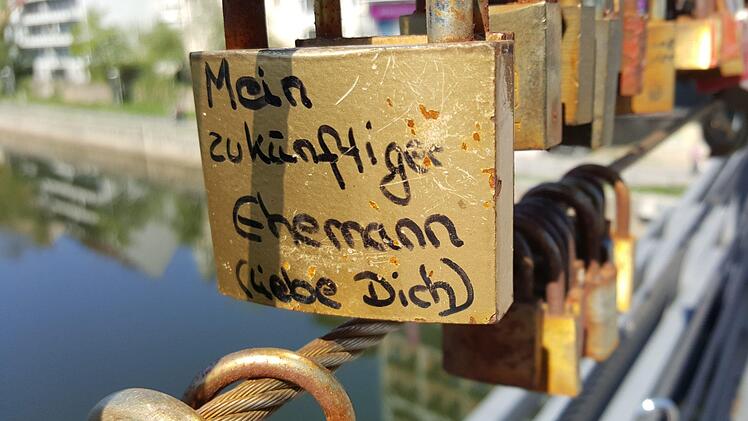 Mein
zukünftiger
Ehemann
(Liebe Dich)